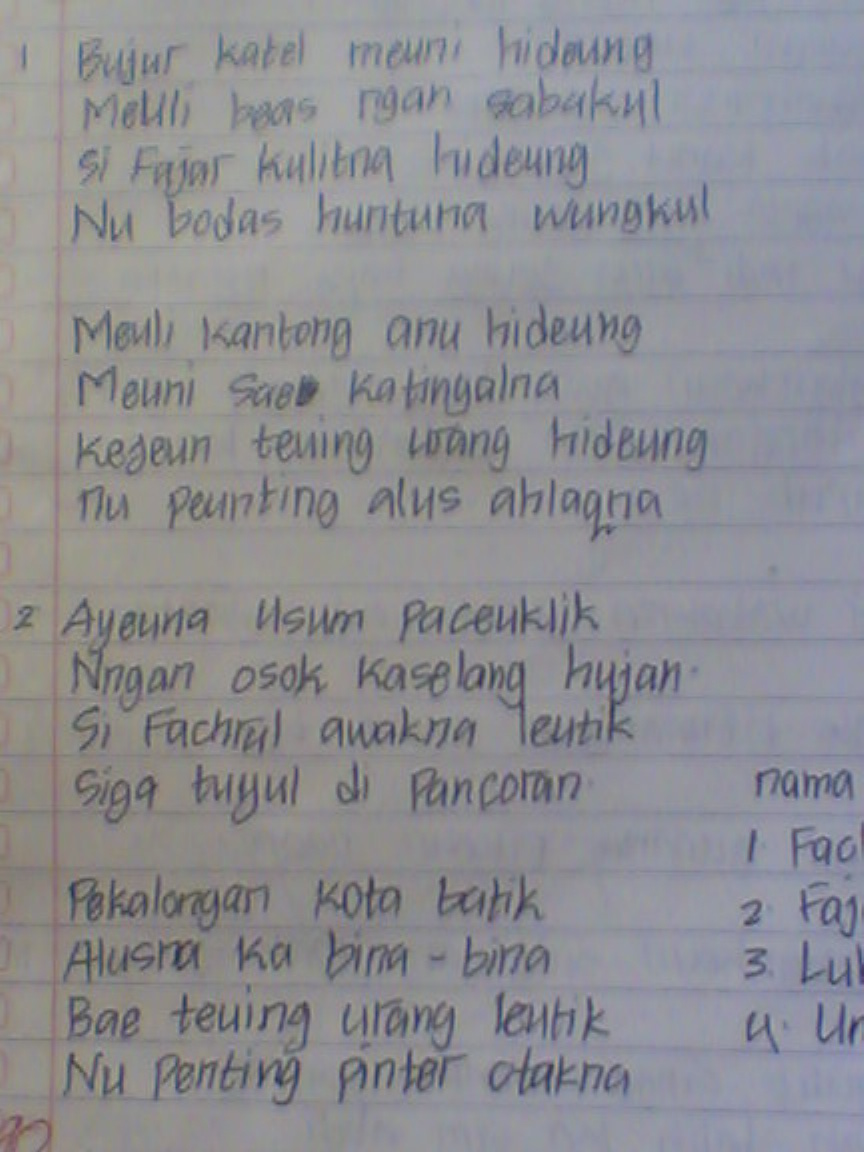 1 Bujur katel meuni hideung
Meuli beas ngan sabakul
Si Fajar kulitna hideung
Nu bodas huntuna wungkul
Meuli kantong anu hideung
Meuni sae katingalna
Kejeun teuing urang hideung
nu peunting alus ahlaqna
2 Ayeuna usum paceuklik
Nngan osok kaselang hujan.
Si Fachrul awakna leutik
Siga tuyul di Pancoran.
nama
1 Fach
Pekalongan kota batik
2. Faj
Alusna ka bina-bina
3. Luk
Bae teuing urang leutik
4. Um
Nu penting pinter otakna